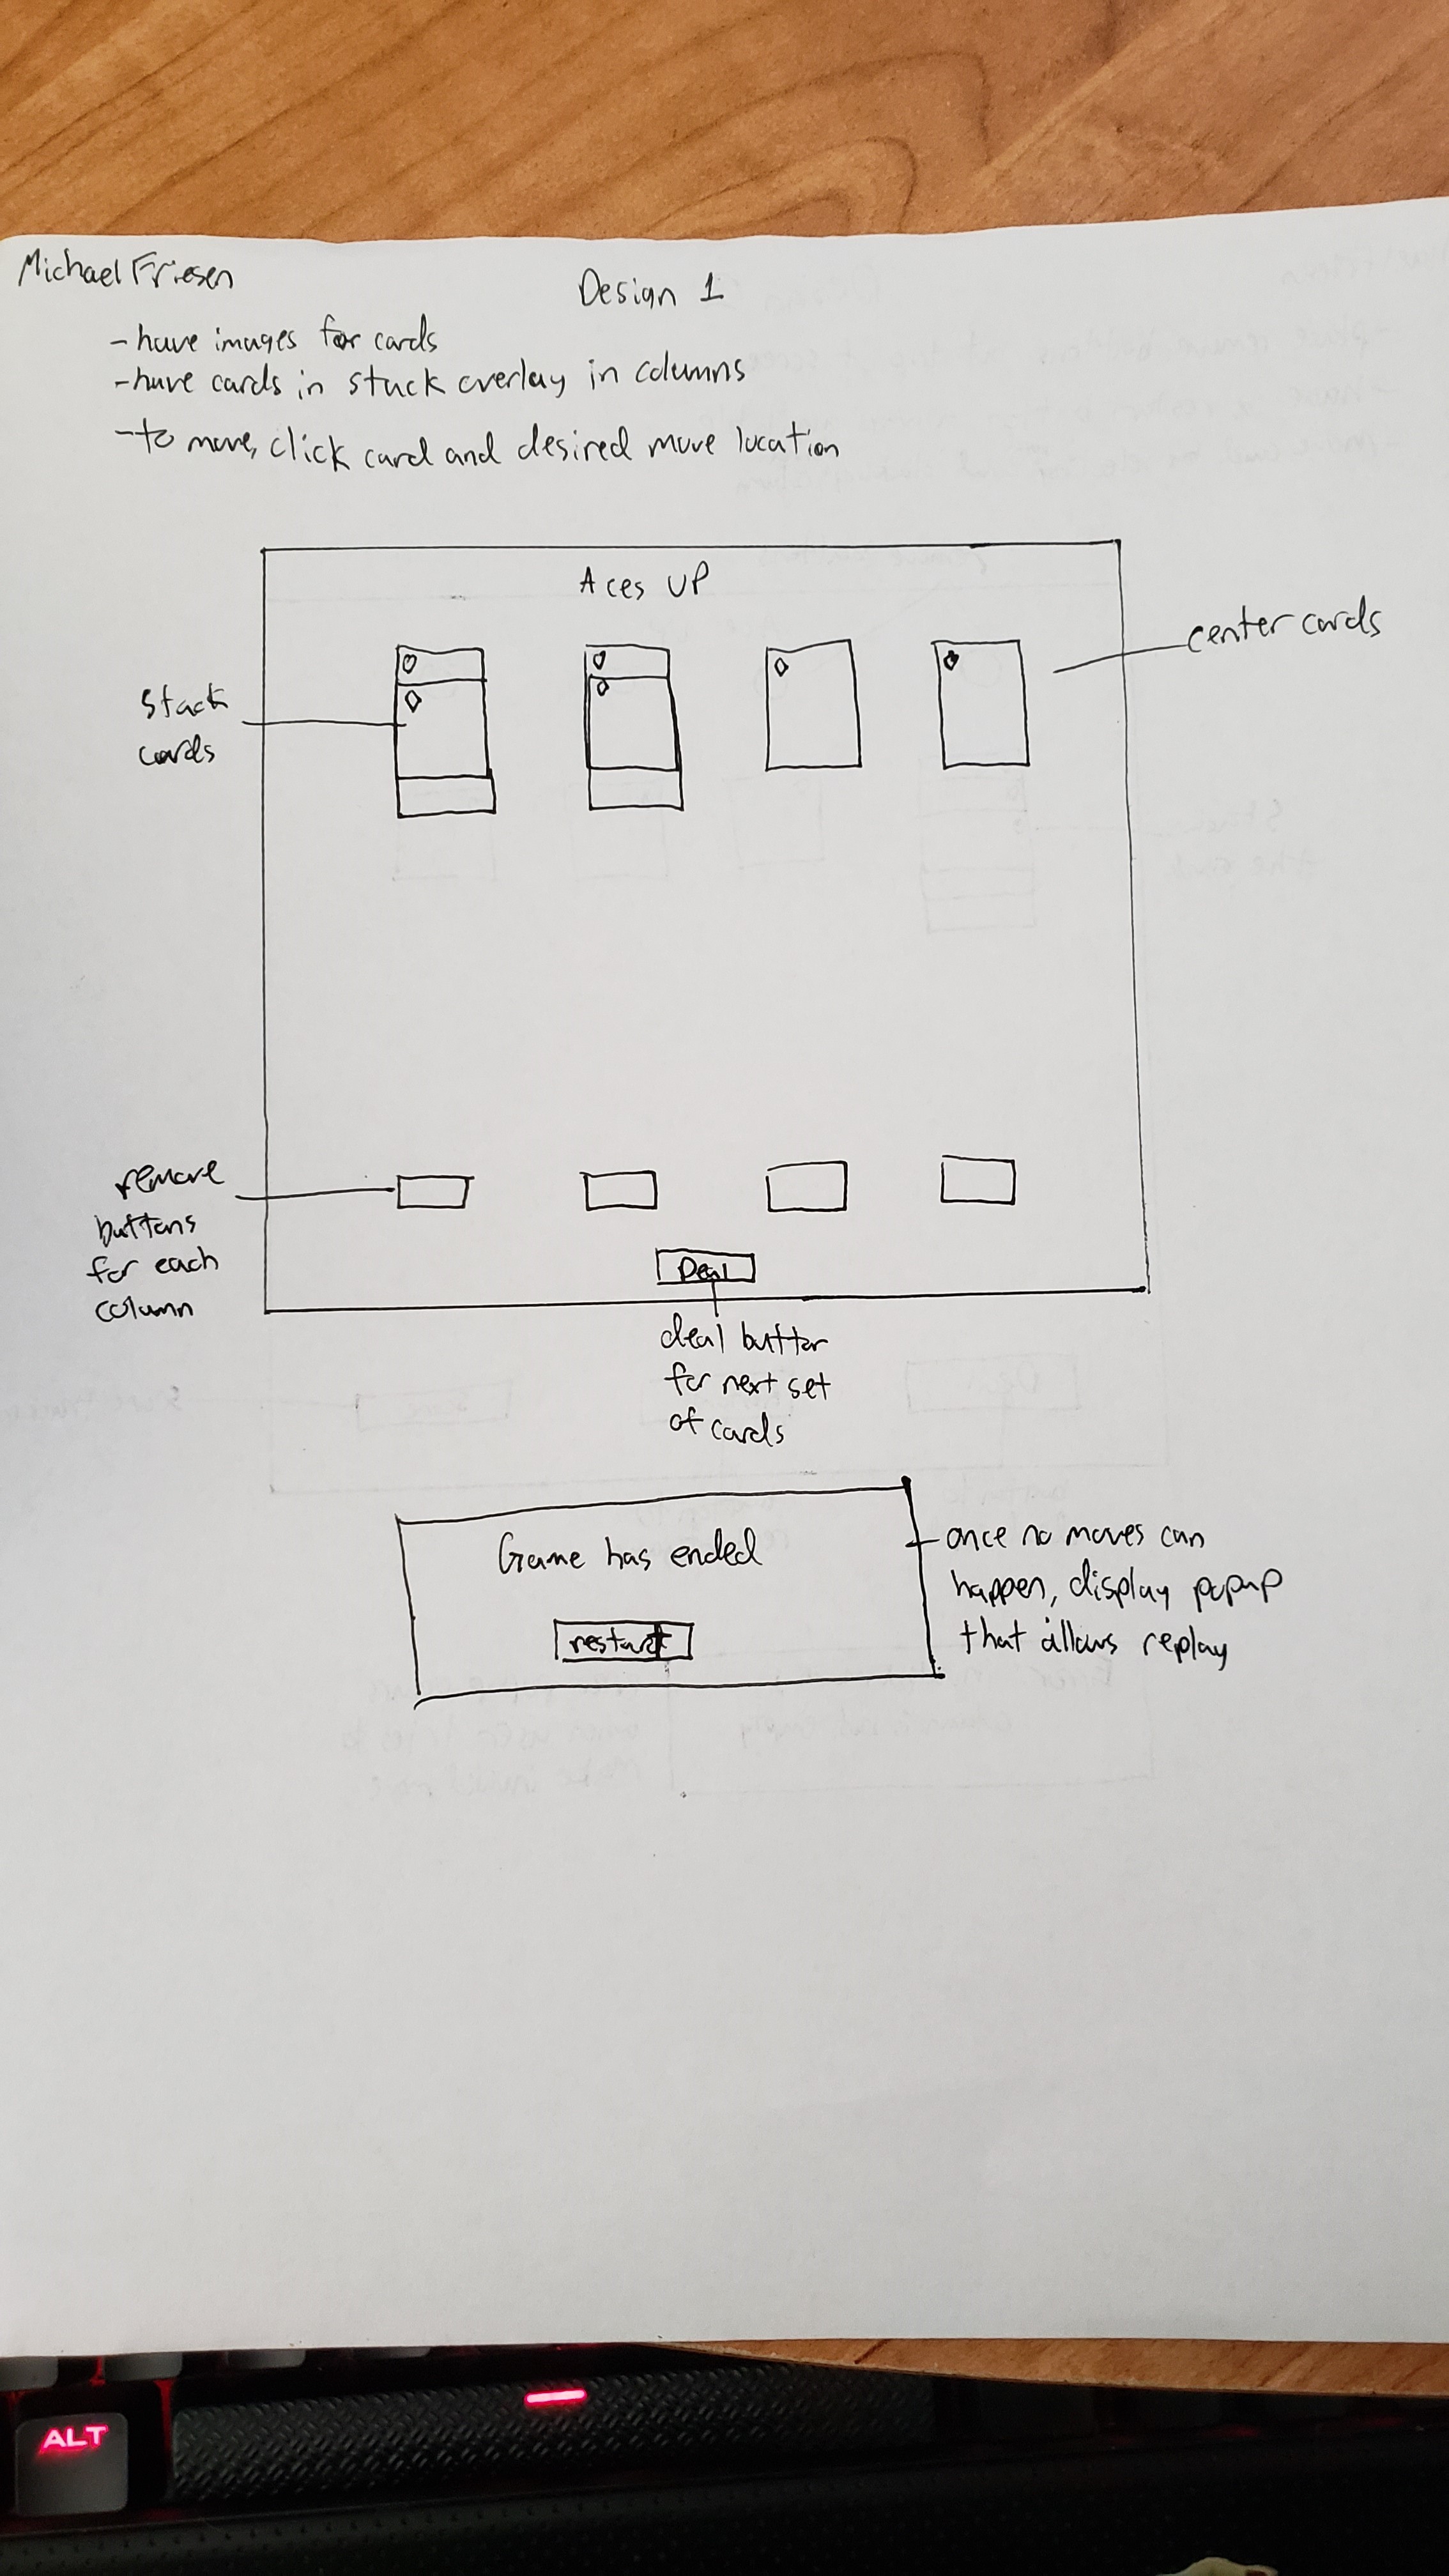 Michael Friesen
Design 1
- have images for cards
- have cards in stack overlay in columns
- to move, click card and desired move location
Aces UP
center cards
stack
cards
remove
buttons
for each
column
Deal
deal button
for next set
of cards
Game has ended
restart
once no moves can
happen, display popup
that allows replay
ALT